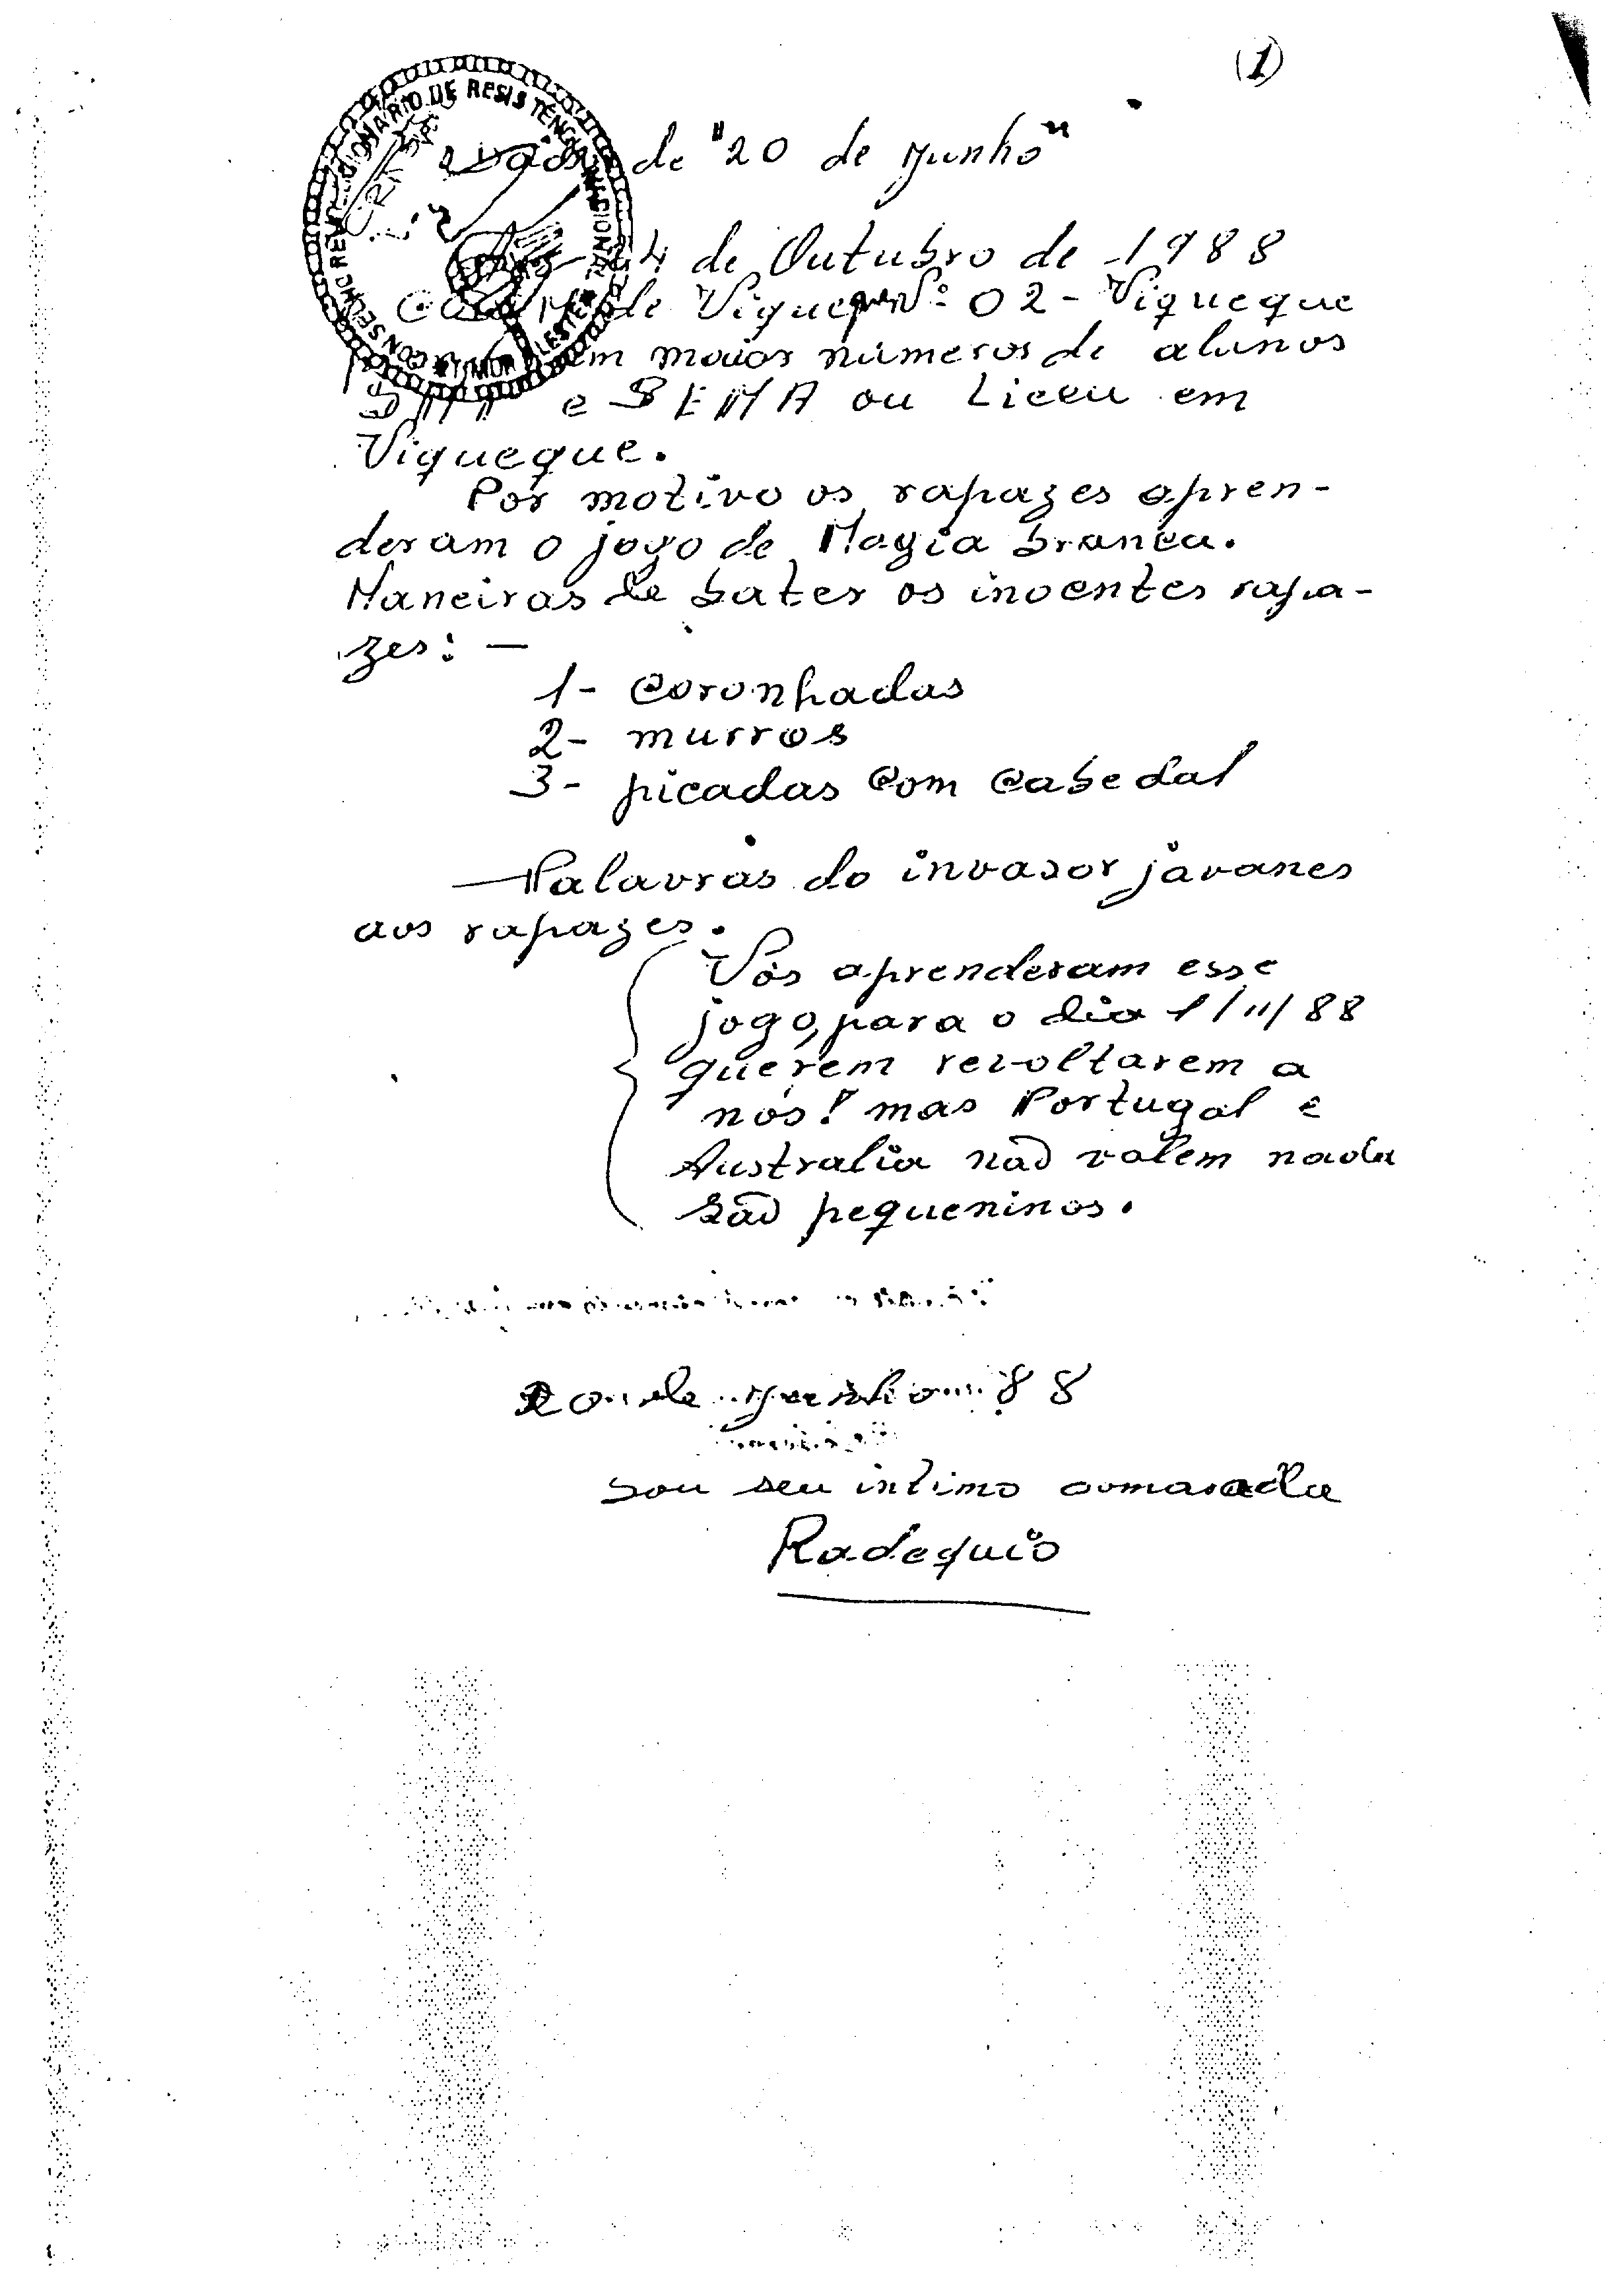 (1)
CONSELHO REVOLUCIONÁRIO DE RESISTÊNCIA NACIONAL TIMOR LESTE
de "20 de Junho"
4 de Outubro de 1988
de Viqueque Nº 02 - Viqueque
em maior números de alunos
e SEMA ou Liceu em
Viqueque.
Por motivo os rapazes apren-
deram o jogo de Magia branca.
Maneiras de bater os inoentes rapa-
zes: —
1- Coronhadas
2- murros
3- picadas com cabedal
— Palavras do invasor javanes
aos rapazes.
Vós aprenderam esse
jogo, para o dia 1/11/88
querem revoltarem a
nós! mas Portugal e
Australia não valem nada
são pequeninos.
20 de Junho 88
sou seu intimo camarada
Radequio